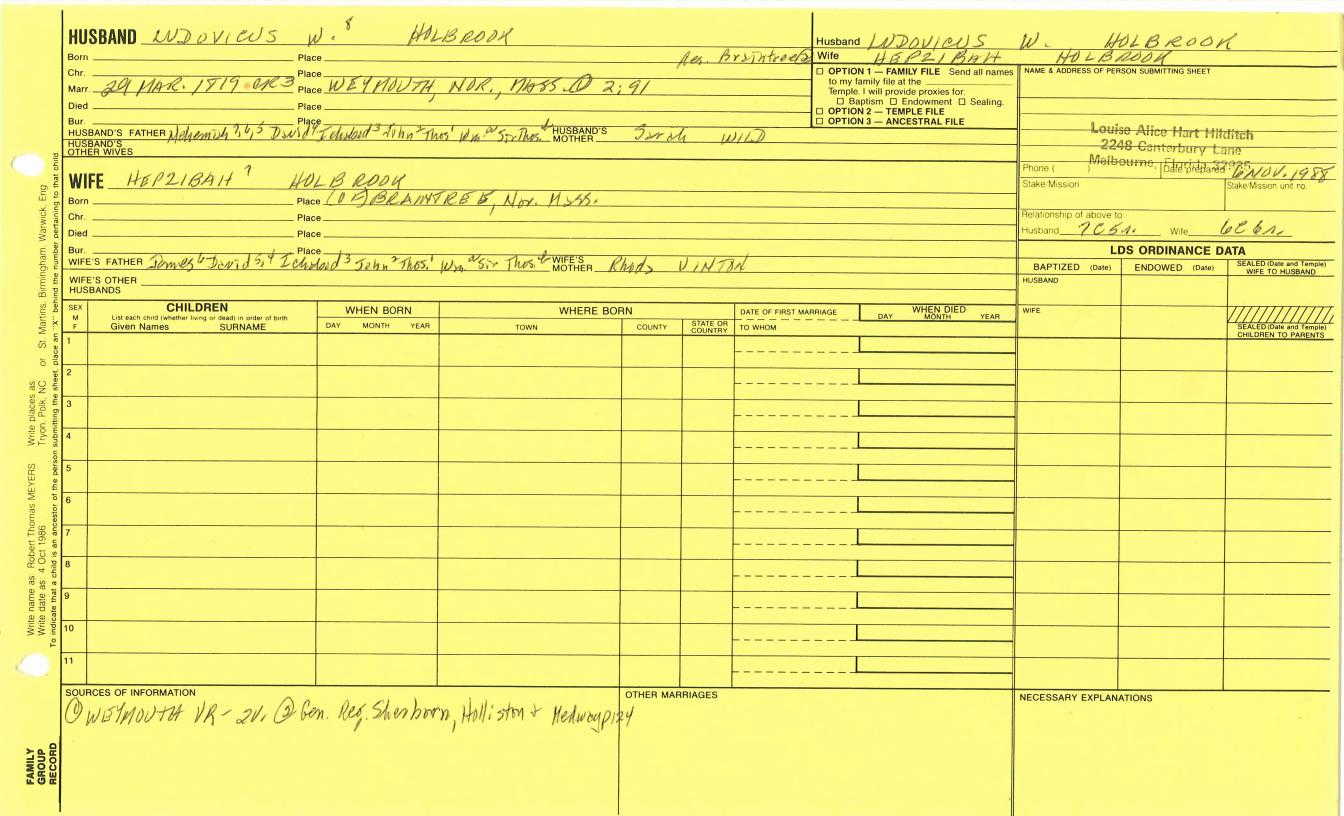 HUSBAND LUDOVICUS W.⁸ HOLBROOK
Born Place Res. Braintree ②
Chr. Place
Marr. 29 MAR. 1819 CR3 Place WEYMOUTH, NOR., MASS. ① 2:91
Died Place
Bur. Place
HUSBAND'S FATHER Nehemiah⁷,⁶,⁵ David⁴ Ichabod³ John² Thos.¹ Wm Sir Thos. HUSBAND'S MOTHER Sarah WILD
HUSBAND'S OTHER WIVES
WIFE HEPZIBAH⁷ HOLBROOK
Born Place (OF) BRAINTREE, Nor. Mass.
Chr. Place
Died Place
Bur. Place
WIFE'S FATHER James⁶ David⁵,⁴ Ichabod³ John² Thos.¹ Wm Sir Thos. WIFE'S MOTHER Rhoda VINTON
WIFE'S OTHER HUSBANDS
Husband LUDOVICUS W. HOLBROOK
Wife HEPZIBAH HOLBROOK
☐ OPTION 1 — FAMILY FILE Send all names
to my family file at the
Temple. I will provide proxies for:
☐ Baptism ☐ Endowment ☐ Sealing.
☐ OPTION 2 — TEMPLE FILE
☐ OPTION 3 — ANCESTRAL FILE
NAME & ADDRESS OF PERSON SUBMITTING SHEET
Louise Alice Hart Hilditch
2248 Canterbury Lane
Melbourne, Florida 32935
Phone ( ) Date prepared 6 NOV. 1988
Stake/Mission Stake/Mission unit no.
Relationship of above to:
Husband 7C6r. Wife 6C6r.
LDS ORDINANCE DATA
BAPTIZED (Date) ENDOWED (Date) SEALED (Date and Temple) WIFE TO HUSBAND
HUSBAND
WIFE
SEALED (Date and Temple) CHILDREN TO PARENTS
SEX M F
CHILDREN
List each child (whether living or dead) in order of birth
Given Names SURNAME
WHEN BORN
DAY MONTH YEAR
WHERE BORN
TOWN COUNTY STATE OR COUNTRY
DATE OF FIRST MARRIAGE
TO WHOM
WHEN DIED
DAY MONTH YEAR
1
2
3
4
5
6
7
8
9
10
11
SOURCES OF INFORMATION
① WEYMOUTH VR - 2v. ② Gen. Reg. Sherborn, Holliston + Medway p124
OTHER MARRIAGES
NECESSARY EXPLANATIONS
Write name as: Robert Thomas MEYERS Write places as: Tryon, Polk, NC or St. Martins, Birmingham, Warwick, Eng
Write date as: 4 Oct 1986
To indicate that a child is an ancestor of the person submitting the sheet, place an "X" behind the number pertaining to that child
FAMILY
GROUP
RECORD